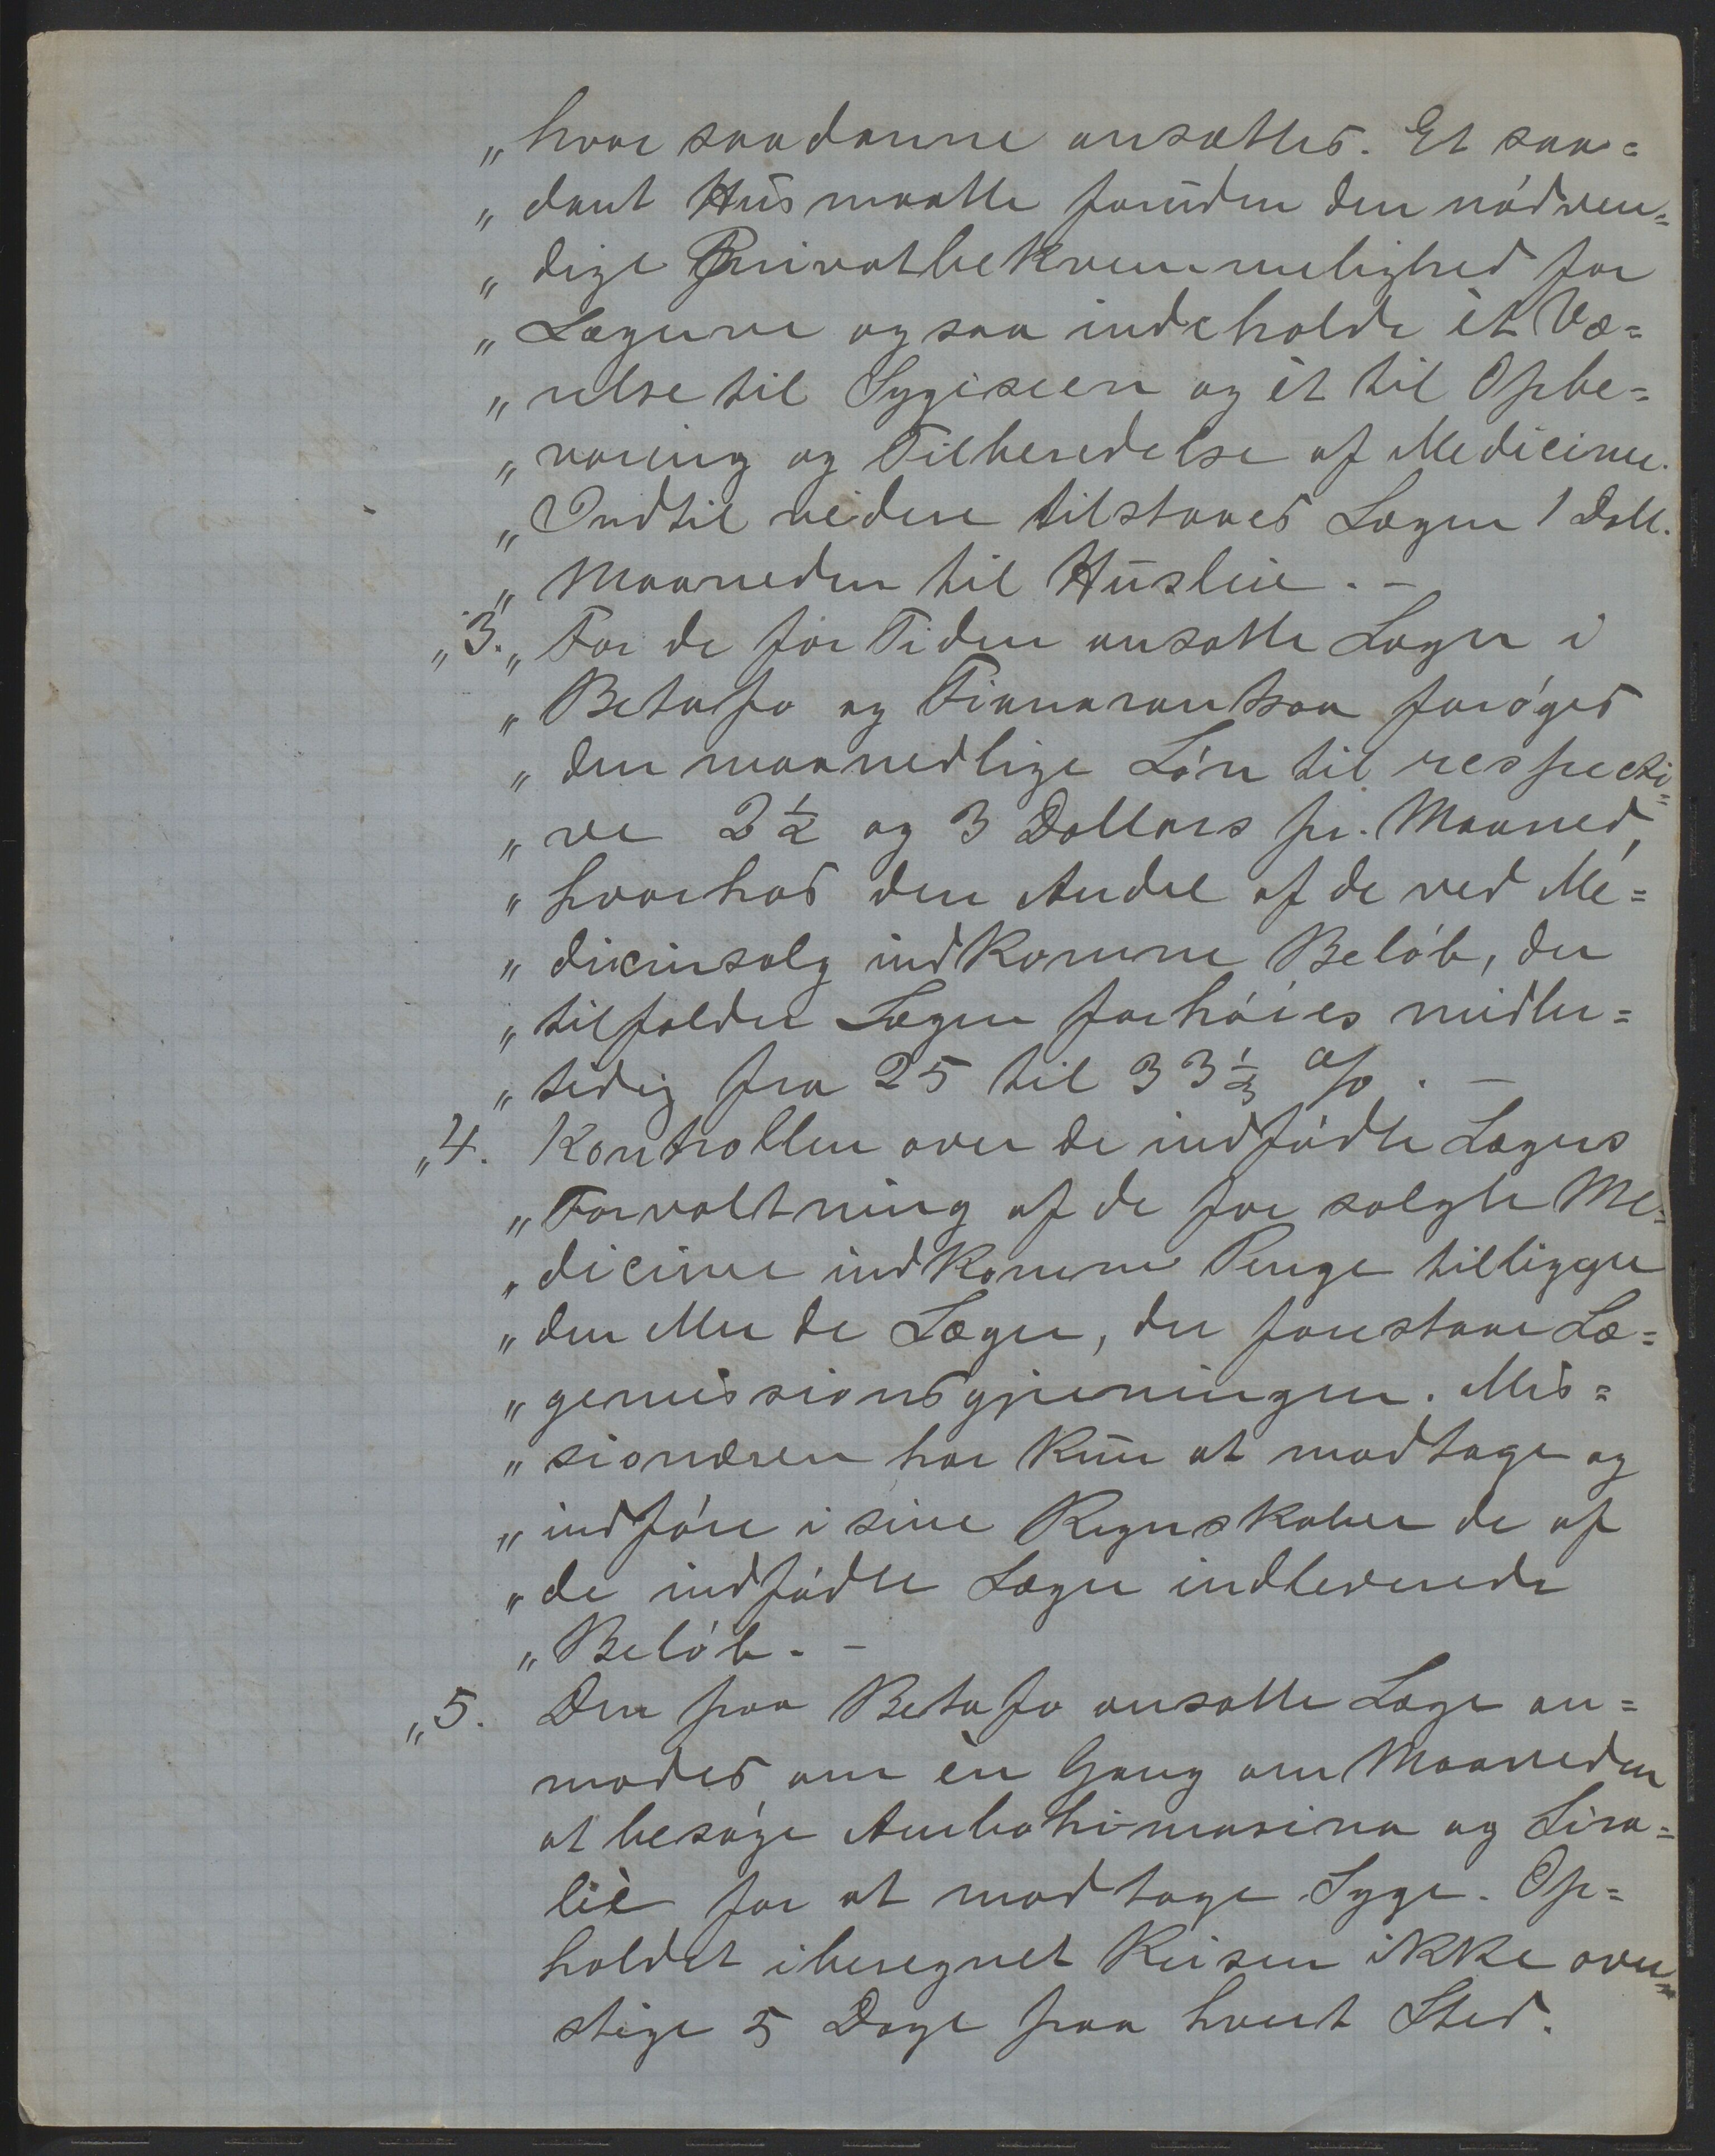 „ hvor saadanne ansættes. Et saa=
„ dant Hus maatte foruden den nødven=
„ dige Privatbekvemmelighed for
„ Lægerne ogsaa indeholde ét Væ=
„ relse til Sygiseen og ét til Opbe=
„ varing og Tilberedelse af Medicine.
„ Indtil videre tilstaaes Lægen 1 Doll.
„ Maaneden til Husleie. –
„3. „ For de for Tiden ansatte Læger i
„ Betafo og Fianarantsoa forøges
„ den maanedlige Løn til respecti=
„ ve 2½ og 3 Dollars pr. Maaned,
„ hvorhos den Andel af de ved Me=
„ dicinsalg indkomne Beløb, der
„ tilfalder Lægen forhøies midler=
„ tidig fra 25 til 33⅓ %. –
„4. Kontrollen over de indfødte Lægers
„ Forvaltning af de for solgte Me=
„ dicine indkomne Penge tilligger
„ den eller de Læger, der forestaar Læ=
„ gemissionsgjerningen. Mis=
„ sionæren har kun at modtage og
„ indføre i sine Regnskaber de af
„ de indfødte Læger indleverede
„ Beløb. –
„5. Den paa Betafo ansatte Læge an=
modes om èn Gang om Maaneden
at besøge Ambohimasina og Sira=
liè for at modtage Syge. Op=
holdet iberegnet Reisen ikke over=
stige 5 Dage paa hvert Sted.